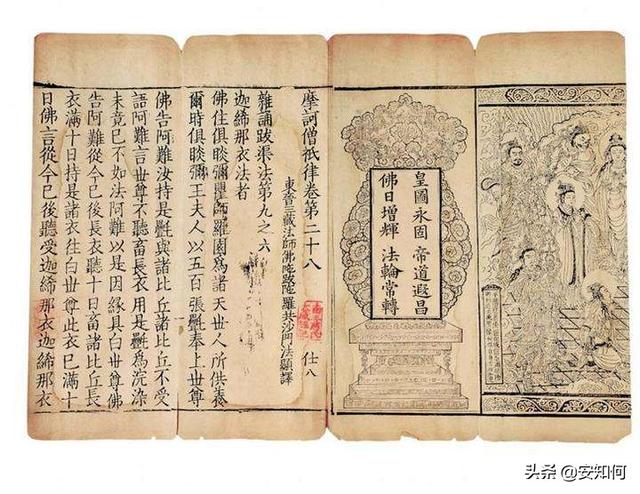 皇國永固 帝道遐昌
佛日增輝 法輪常轉
摩訶僧祇律卷第二十八 仕八
東晉三藏法師佛陀跋陀羅共沙門法顯譯
雜誦跋渠法第九之六
迦絺那衣法者
佛住俱睒彌瞿師羅園為諸天世人所供養
爾時俱睒彌王夫人以五百張㲲奉上世尊
佛告阿難汝持是㲲與諸比丘諸比丘不受
語阿難言世尊不聽畜長衣用是㲲為浣染
未竟已不如法阿難以是因緣具白世尊佛
告阿難從今已後長衣聽十日畜諸比丘長
衣滿十日持是諸衣往白世尊此衣已滿十
日佛言從今已後聽受迦絺那衣迦絺那衣
头条 @安知何